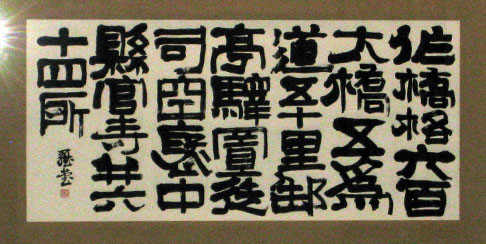 作橋格六百
大橋五為
道五十里郵
亭驛置徒
司空褒中
縣官寺并六
十四所